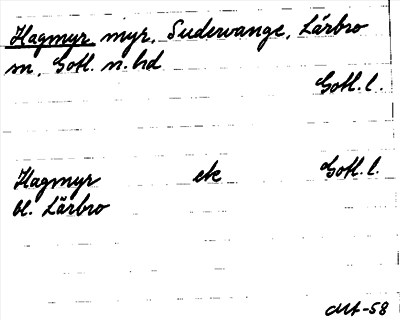 Hagmyr myr, Sudervange, Lärbro
sn, Gotl. n. hd
Gotl. l.
Hagmyr ek Gotl. l.
bl. Lärbro